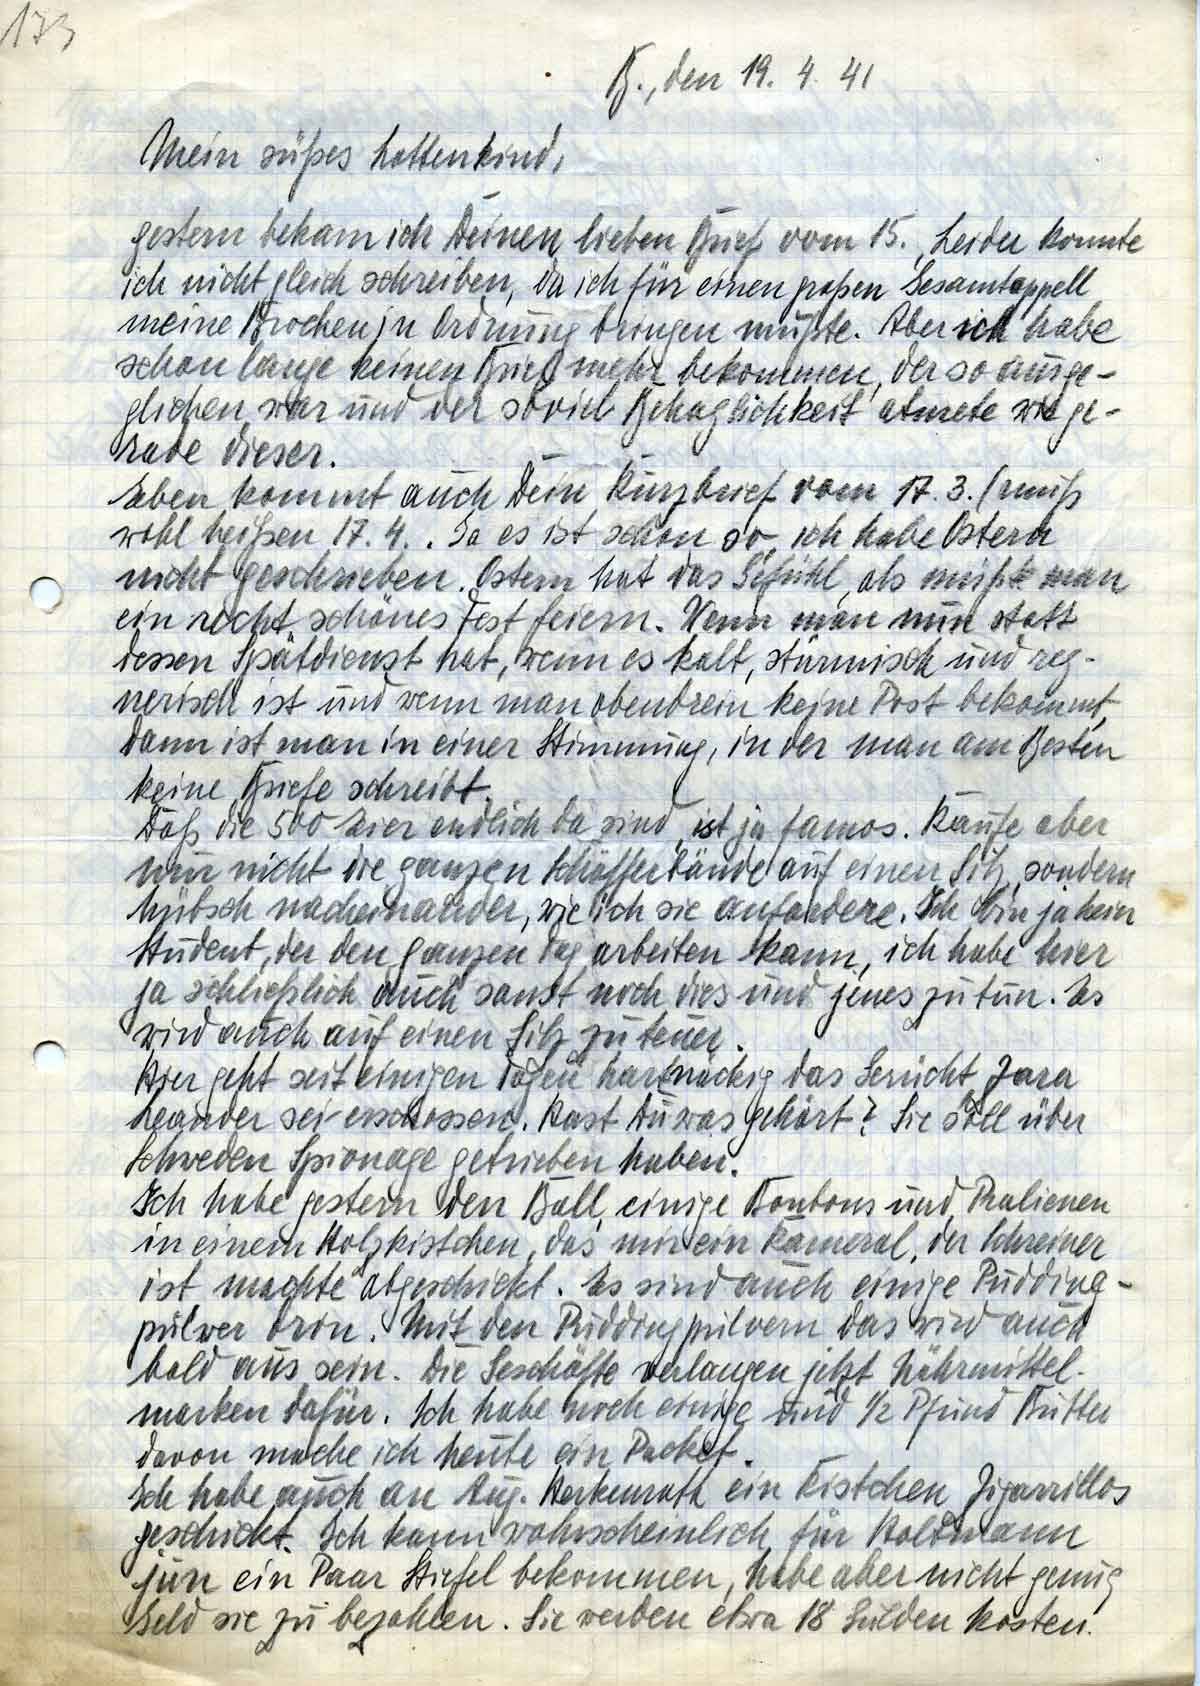 173
B., den 19. 4. 41
Mein süßes Lottenkind,
gestern bekam ich Deinen lieben Brief vom 15. Leider konnte
ich nicht gleich schreiben, da ich für einen großen Gesamtappell
meine Brocken in Ordnung bringen mußte. Aber ich habe
schon lange keinen Brief mehr bekommen, der so ausge-
glichen war und der soviel Behaglichkeit atmete wie ge-
rade dieser.
Eben kommt auch Dein Kurzbrief vom 17. 3. (muß
wohl heißen 17. 4. . Ja es ist schon so, ich habe Ostern
nicht geschrieben. Ostern hat das Gefühl, als müßte man
ein recht schönes Fest feiern. Wenn man nun statt
dessen Spätdienst hat, wenn es kalt, stürmisch und reg-
nerisch ist und wenn man obendrein keine Post bekommt,
dann ist man in einer Stimmung, in der man am Besten
keine Briefe schreibt.
Daß die 500 Eier endlich da sind, ist ja famos. Kaufe aber
nun nicht die ganzen Schäffer Bände auf einen Sitz, sondern
hübsch nacheinander, wie ich sie anfordere. Ich bin ja kein
Student, der den ganzen Tag arbeiten kann, ich habe hier
ja schließlich auch sonst noch dies und jenes zu tun. Es
wird auch auf einen Sitz zu teuer.
Hier geht seit einigen Tagen hartnäckig das Gerücht Zara
Leander sei erschossen. Hast Du was gehört? Sie soll über
Schweden Spionage getrieben haben.
Ich habe gestern den Ball, einige Bonbons und Pralienen
in einem Holzkistchen, das mir ein Kamerad, der Schreiner
ist machte abgeschickt. Es sind auch einige Pudding-
pulver drin. Mit den Puddingpulvern das wird auch
bald aus sein. Die Geschäfte verlangen jetzt Nährmittel-
marken dafür. Ich habe noch einige und 1/2 Pfund Butter
davon mache ich heute ein Packet.
Ich habe auch an Aug. Herkenrath ein Kistchen Zigarrillos
geschickt. Ich kann wahrscheinlich für Holtmann
jun ein Paar Stiefel bekommen, habe aber nicht genug
Geld sie zu bezahlen. Sie werden etwa 18 Gulden kosten.